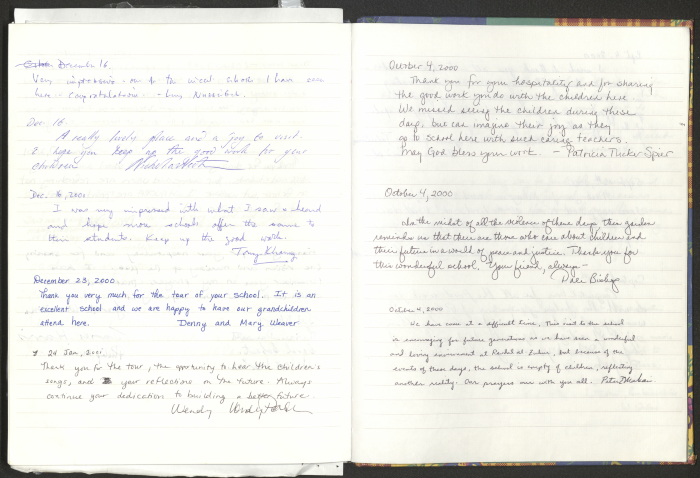 December 16.
Very impressive - one of the nicest schools I have seen
here - Congratulations -
Dec 16.
A really lovely place and a joy to visit.
I hope you keep up the good work for your
children.
Dec. 16, 2001
I was very impressed with what I saw & heard
and hope more schools offer the same to
their students. Keep up the good work.
Tony Khany
December 23, 2000
Thank you very much for the tour of your school. It is an
excellent school and we are happy to have our grandchildren
attend here. Denny and Mary Weaver
24 Jan, 2001
Thank you for the tour, the opportunity to hear the children's
songs, and your reflections on the future. Always
continue your dedication to building a better future.
Wendy
October 4, 2000
Thank you for your hospitality and for sharing
the good work you do with the children here
We missed seeing the children during these
days, but can imagine their joy as they
go to school here with such caring teachers.
May God bless your work. - Patricia Tucker Spier
October 4, 2000
In the midst of all the violence of these days this garden
reminds us that there are those who care about children and
their future in a world of peace and justice. Thank you for
this wonderful school. Your friend, always -
Dale Bishop
October 4, 2000
We have come at a difficult time. This visit to the school
is encouraging for future generations as we have seen a wonderful
and loving environment at but because of the
events of these days, the school is empty of children, reflecting
another reality. Our prayers are with you all. Peter